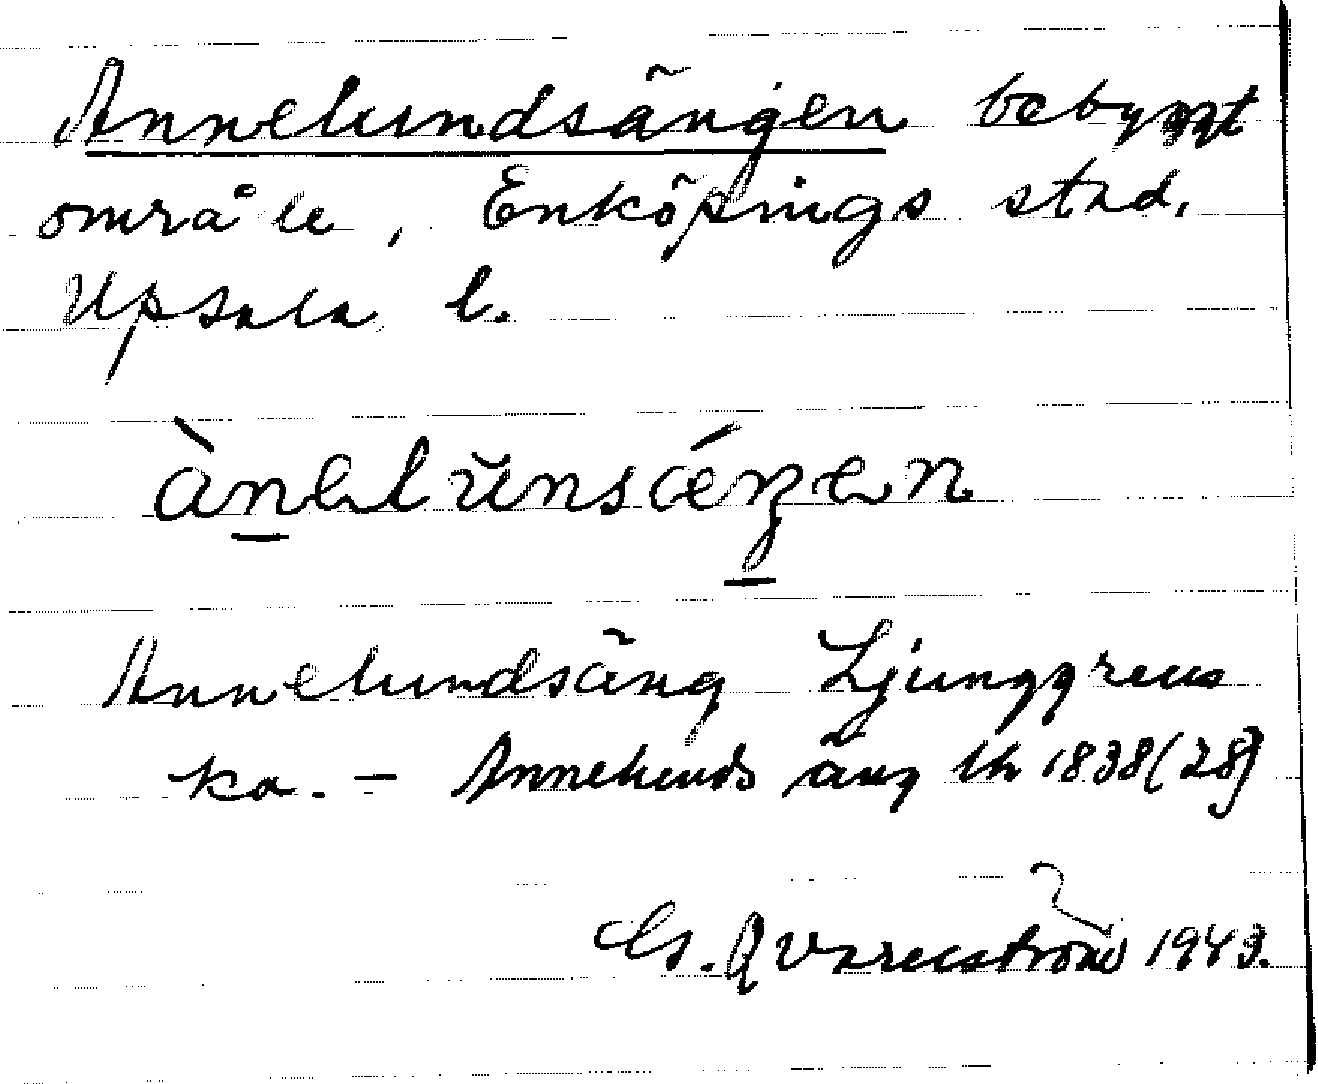 Annelundsängen bebyggt
område, Enköpings stad,
Upsala l.
ànelŭnsǽŋen
Annelundsäng Ljunggrens
ka. – Annelunds äng lh 1838 (28)
G. Qvarnström 1943.